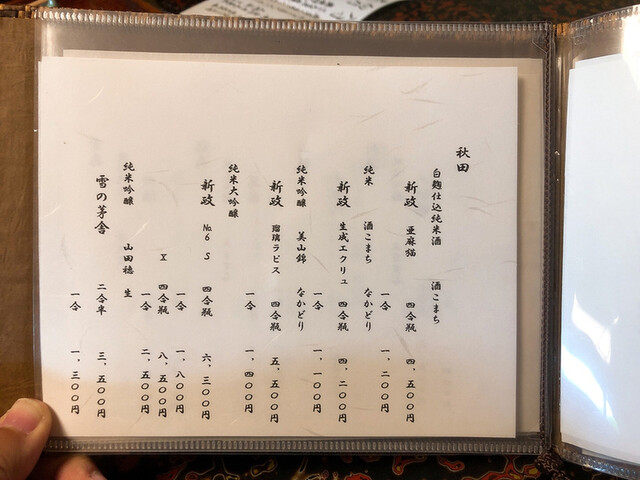 秋田
白麹仕込純米酒 酒こまち
新政 亜麻猫 四合瓶 四，五〇〇円
一合 一，二〇〇円
純米 酒こまち なかどり
新政 生成エクリュ 四合瓶 四，二〇〇円
一合 一，一〇〇円
純米吟醸 美山錦 なかどり
新政 瑠璃ラピス 四合瓶 五，五〇〇円
一合 一，四〇〇円
純米大吟醸
新政 No.6 S 四合瓶 六，三〇〇円
一合 一，八〇〇円
X 四合瓶 八，五〇〇円
一合 二，五〇〇円
純米吟醸 山田穂 生
雪の茅舎 二合半 三，五〇〇円
一合 一，三〇〇円